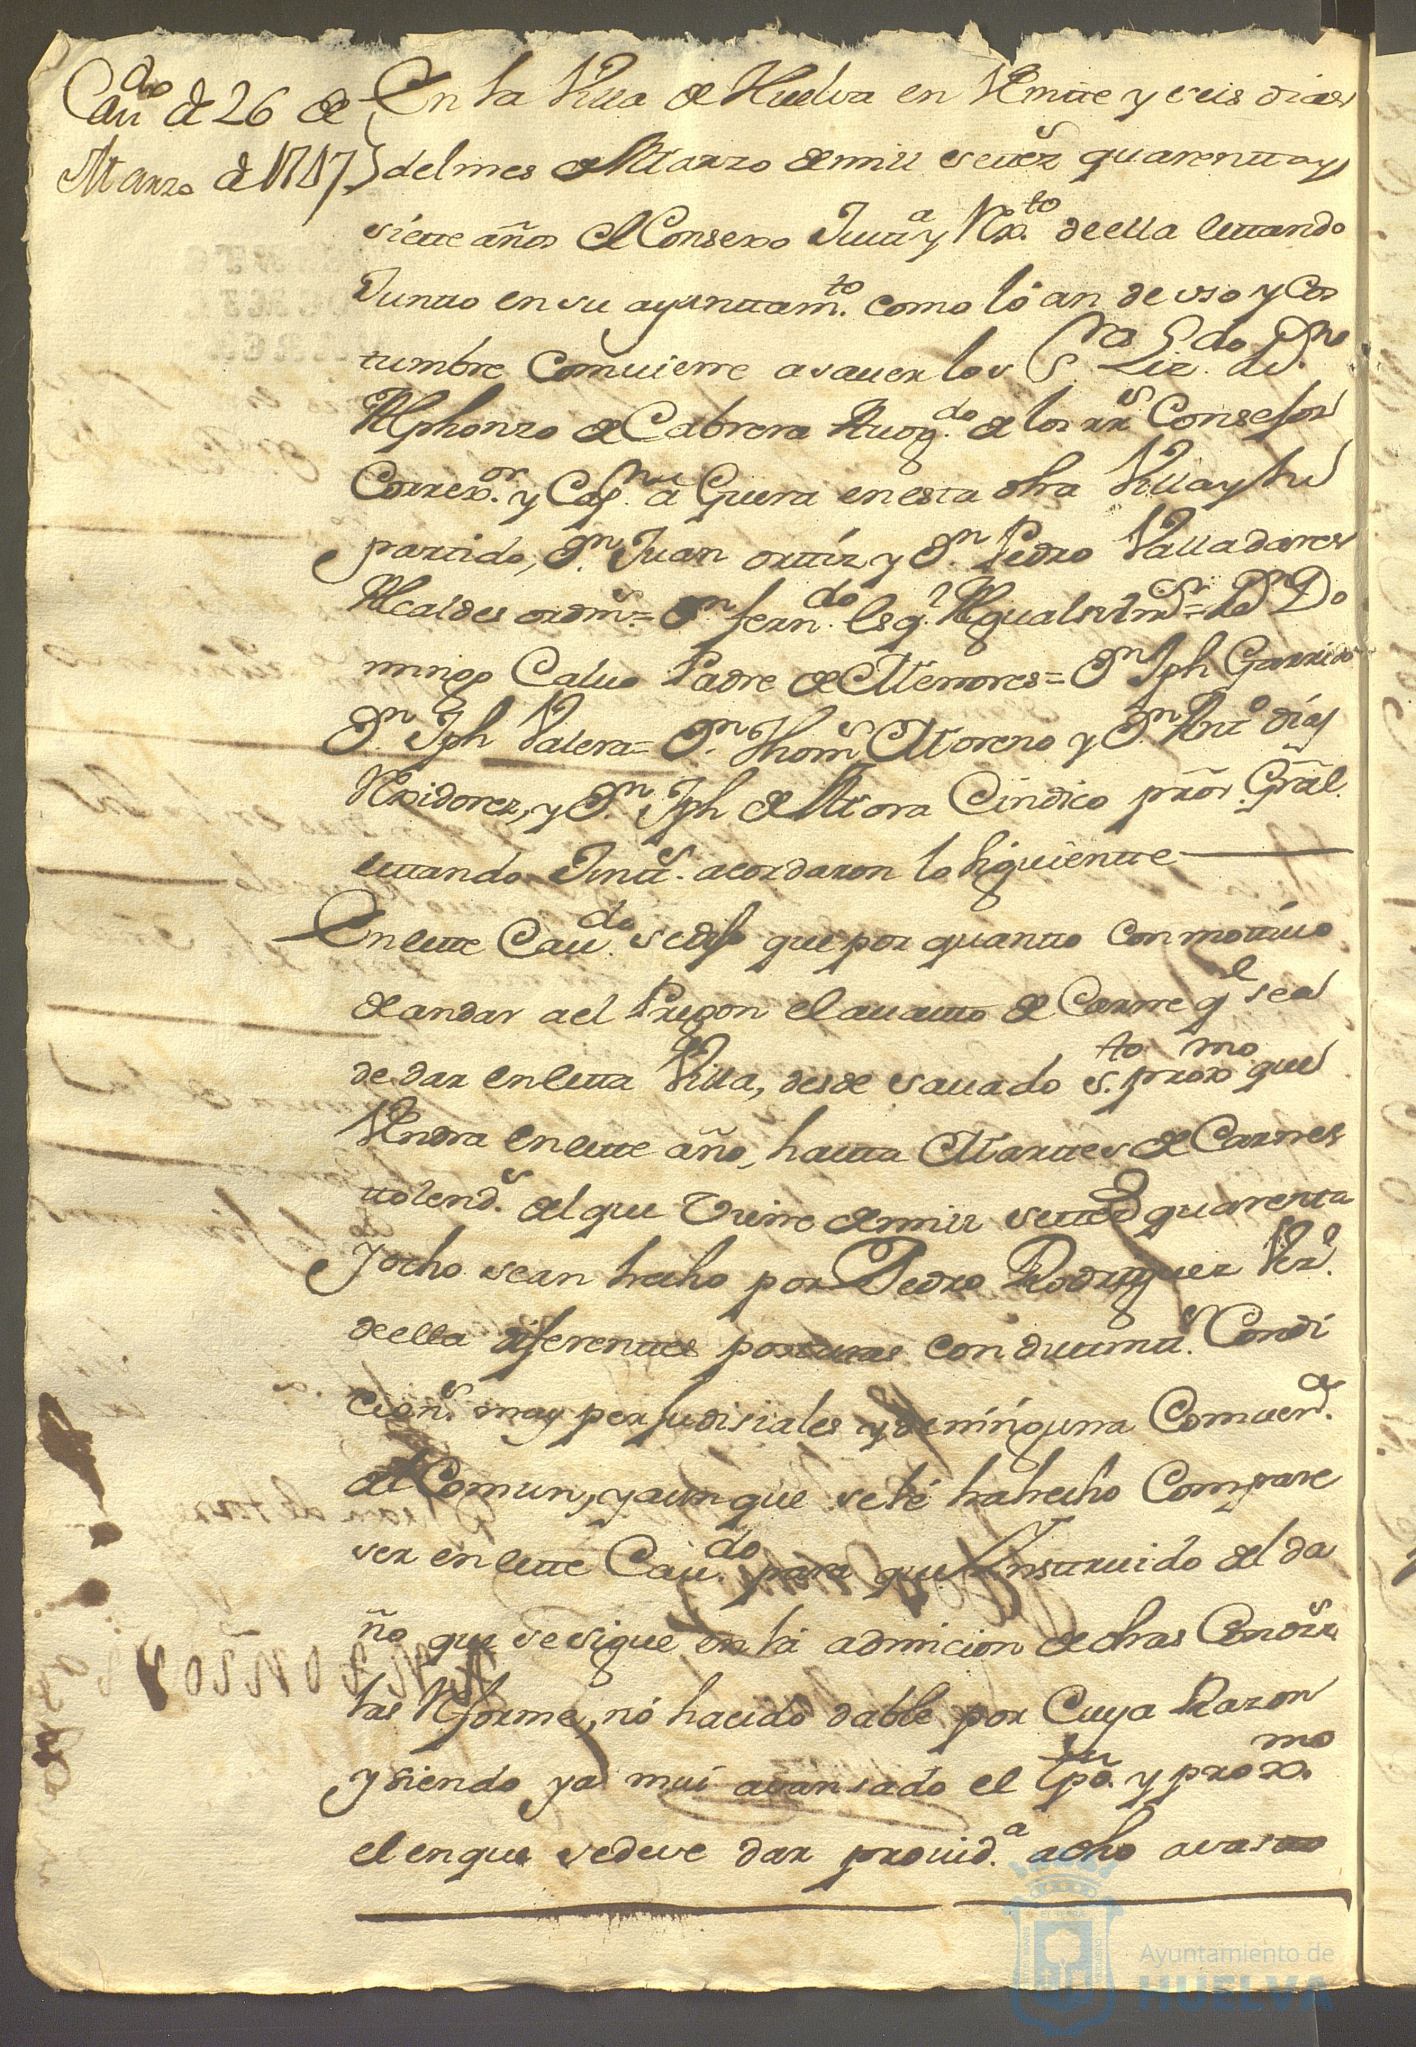 Cau.do de 26 de
Marzo de 1747
En la Villa de Huelva en Veinte y seis dias
del mes de Marzo de mill setez.s quarentta y
siette años el Consexo Justt.a y Rx.to de ella esttando
Juntto en su ayunttam.to como lo an de uso y cos
tumbre combiene a sauer los S.res Liz.do D.n
Alphonzo de Cabrera Auog.do de los rr.s Consejos
Correx.or y Cap.n a Guerra en esta dha Villa y su
partido, D.n Juan orttiz y D.n Pedro Valladares
Alcaldes ordin.s = D.n fern.do Esq.l Alguasil m.r = D.n Do
mingo Caluo Padre de Menores = D.n Jph Garrido
D.n Jph Valera = D.n Thom.s Moreno y D.n Ant.o dias
Rexidores, y D.n Jph de Mora Cindico pror. Gral.
esttando Juntt.s acordaron lo siguientte
En este Cau.do se dijo que por quantto con mottiuo
de andar a el Pregon el auastto de Carne q.e se a
de dar en estta Villa, desde sauado s.to prox.mo que
Vendra en estte año, hastta Marttes de Carnes
ttolend.s del que Viene de mill settez.s quarenta
Y ocho se an hecho por Pedro Rodriguez Vez.o
de ella diferenttes posturas con disttintt.s Condi
cion.s muy perjudisiales y de ninguna Comuen.a
al Comun, y aunque se le ha hecho Compare
ser en estte Cau.do para que Ynsttruido del da
ño que se sigue en la admicion de dhas Condiz.s
las Reforme, no ha cido dable por Cuya Razon
y siendo ya mui auansado el tpo. y prox.mo
el en que se deue dar prouid.a a dho auastto
Ayuntamiento de
HUELVA